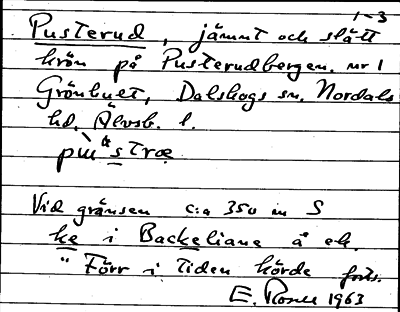 1-3
Pusterud, jämnt och slätt
krön på Pusterudbergen. nr 1
Grönhult, Dalskogs sn. Nordals
hd. Älvsb. l.
Vid gränsen c:a 350 m S
ke i Backeliane å ek.
" Förr i tiden körde forts.
E. 1963